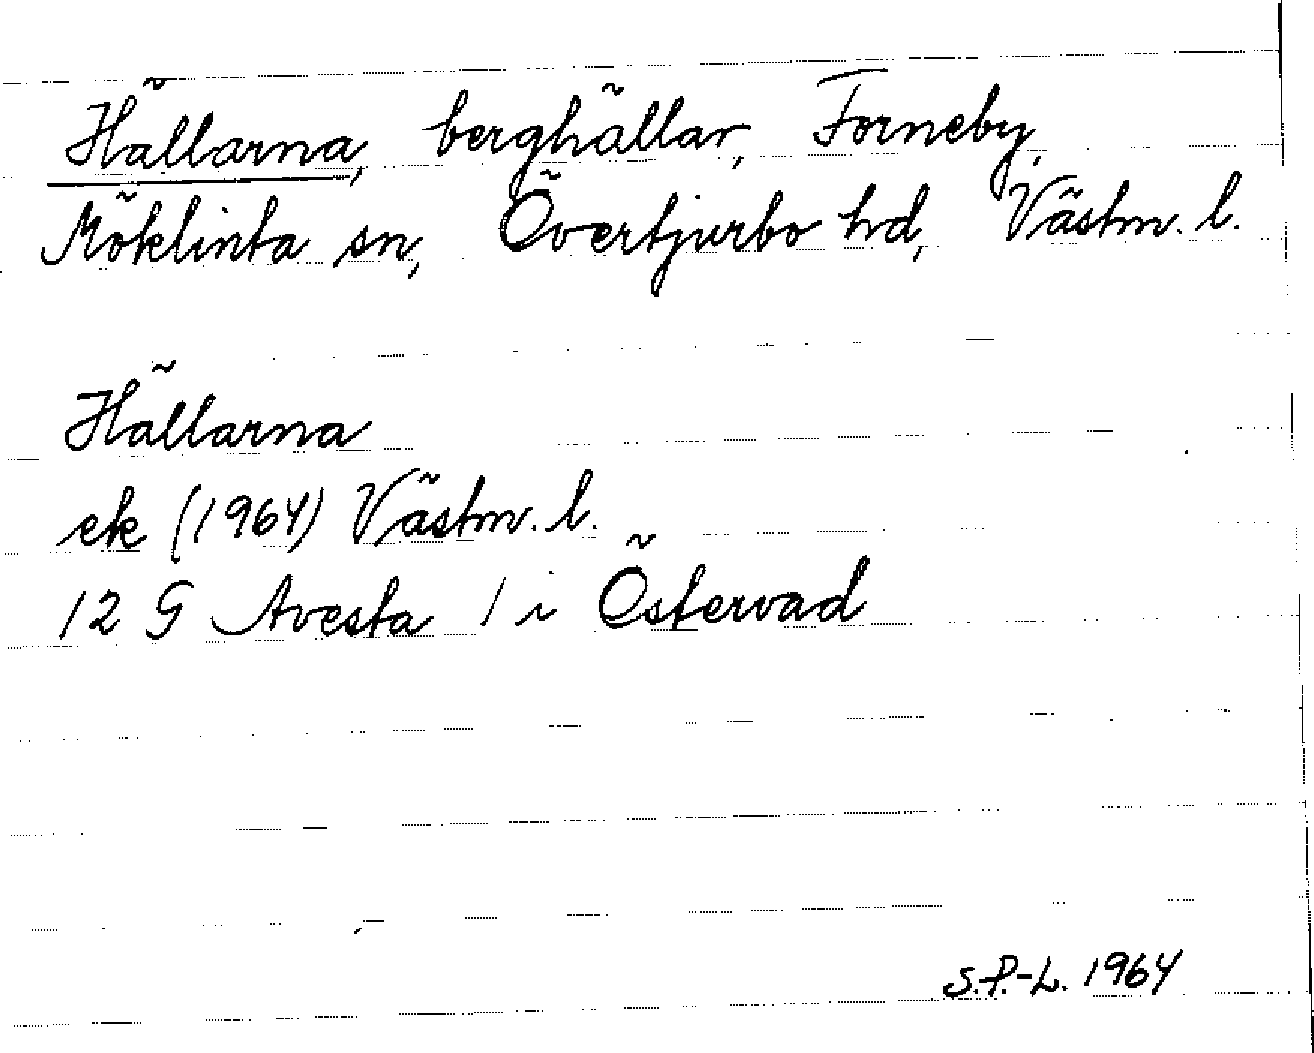 Hällarna, berghällar, Forneby,
Möklinta sn, Övertjurbo hd, Västm. l.
Hällarna
ek (1964) Västm. l.
12 G Avesta 1 i Östervad
S.P.-L. 1964